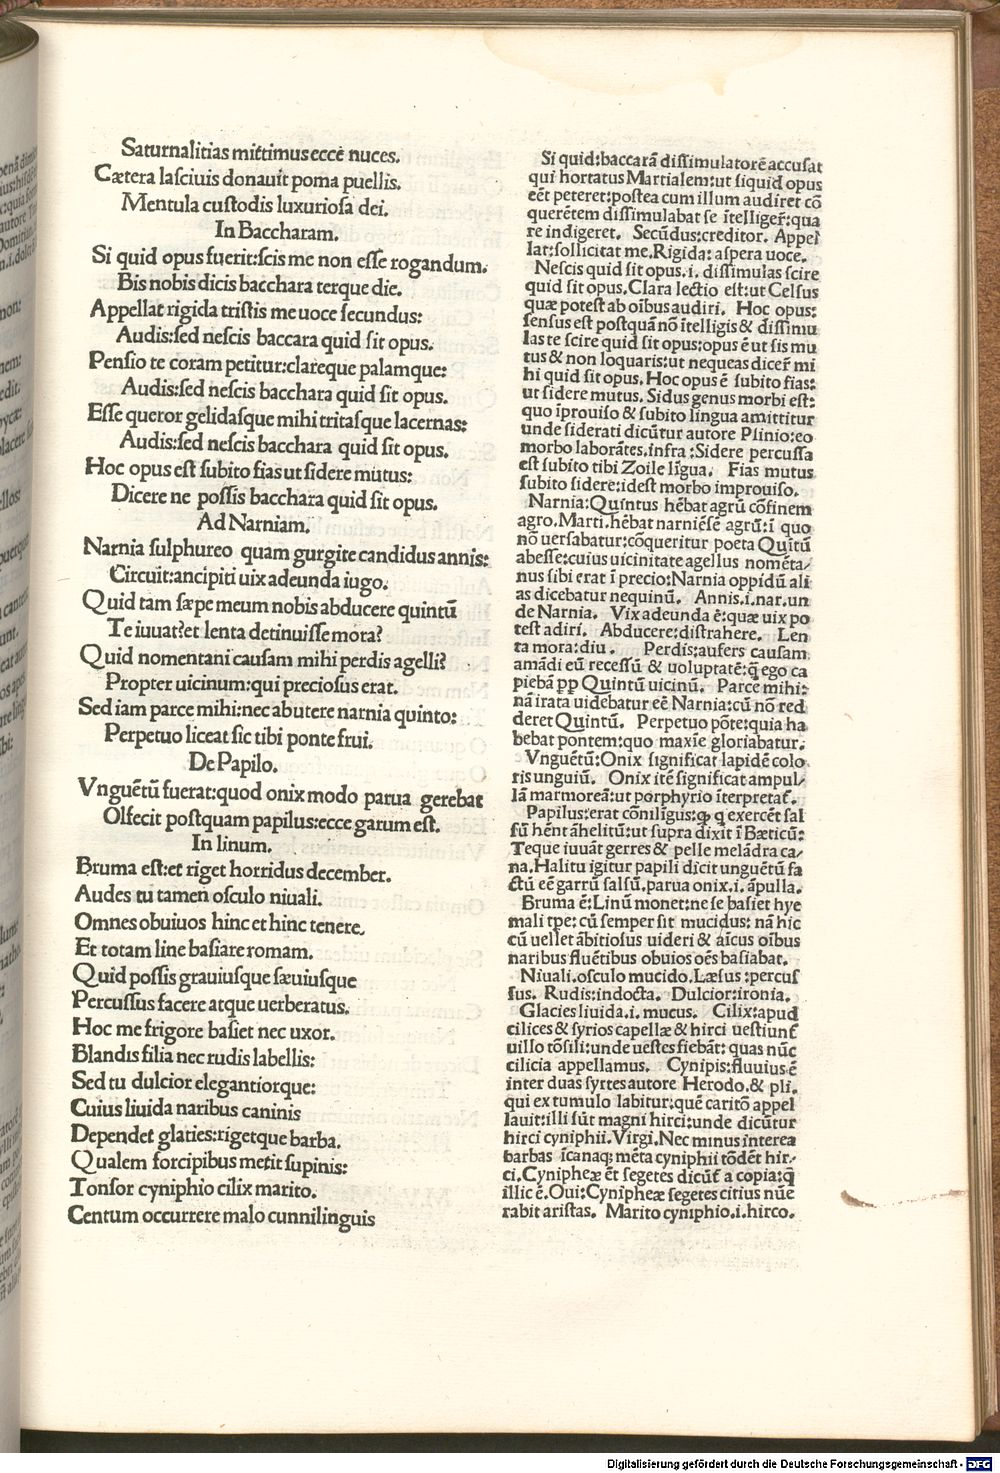 Saturnalitias mittimus ecce nuces.
Cætera lasciuis donauit poma puellis.
Mentula custodis luxuriosa dei.
In Baccharam.
Si quid opus fuerit:scis me non esse rogandum.
Bis nobis dicis bacchara terque die.
Appellat rigida tristis me uoce secundus:
Audis:sed nescis baccara quid sit opus.
Pensio te coram petitur:clareque palamque:
Audis:sed nescis bacchara quid sit opus.
Esse queror gelidasque mihi tritasque lacernas:
Audis:sed nescis bacchara quid sit opus.
Hoc opus est subito fias ut sidere mutus:
Dicere ne possis bacchara quid sit opus.
Ad Narniam.
Narnia sulphureo quam gurgite candidus annis:
Circuit:ancipiti uix adeunda iugo.
Quid tam sæpe meum nobis abducere quintū
Te iuuat?et lenta detinuisse mora?
Quid nomentani causam mihi perdis agelli?
Propter uicinum:qui preciosus erat.
Sed iam parce mihi:nec abutere narnia quinto:
Perpetuo liceat sic tibi ponte frui.
De Papilo.
Vnguētū fuerat:quod onix modo parua gerebat
Olfecit postquam papilus:ecce garum est.
In linum.
Bruma est:et riget horridus december.
Audes tu tamen osculo niuali.
Omnes obuiuos hinc et hinc tenere.
Et totam line basiare romam.
Quid possis grauiusque sæuiusque
Percussus facere atque uerberatus.
Hoc me frigore basiet nec uxor.
Blandis filia nec rudis labellis:
Sed tu dulcior elegantiorque:
Cuius liuida naribus caninis
Dependet glaties:rigetque barba.
Qualem forcipibus metit supinis:
Tonsor cyniphio cilix marito.
Centum occurrere malo cunnilinguis
Si quid:baccarā dissimulatorē accusat
qui hortatus Martialem:ut siquid opus
eēt peteret:postea cum illum audiret cō
querētem dissimulabat se ītelliger̄:qua
re indigeret. Secūdus:creditor. Appel
lat:sollicitat me.Rigida:aspera uoce.
Nescis quid sit opus.i. dissimulas scire
quid sit opus.Clara lectio est:ut Celsus
quæ potest ab oībus audiri. Hoc opus:
sensus est postquā nō ītelligis & dissimu
las te scire quid sit opus:opus ē ut sis mu
tus & non loquaris:ut nequeas dicer̄ mi
hi quid sit opus. Hoc opus ē subito fias:
ut sidere mutus. Sidus genus morbi est:
quo īprouiso & subito lingua amittitur
unde siderati dicūtur autore Plinio:eo
morbo laborātes.infra:Sidere percussa
est subito tibi Zoile līgua. Fias mutus
subito sidere:idest morbo improuiso.
Narnia:Quintus hēbat agrū cōfinem
agro.Marti.hēbat narniēsē agrū:ī quo
nō uersabatur:cōqueritur poeta Quītū
abesse:cuius uicinitate agellus nomēta/
nus sibi erat ī precio:Narnia oppidū ali
as dicebatur nequinū. Annis.i.nar.un
de Narnia. Vix adeunda ē:quæ uix po
test adiri. Abducere:distrahere. Len
ta mora:diu. Perdis:aufers causam
amādi eū recessū & uoluptatē:q̄ ego ca
piebā ꝓp Quintū uicinū. Parce mihi:
nā irata uidebatur eē Narnia:cū nō red
deret Quintū. Perpetuo pōte:quia ha
bebat pontem:quo maxīe gloriabatur.
Vnguētū:Onix significat lapidē colo
ris unguiū. Onix itē significat ampul/
lā marmoreā:ut porphyrio īterpretat̄.
Papilus:erat cōniligus:qꝫ q exercēt sal
sū hēnt āhelitū:ut supra dixit ī Bæticū:
Teque iuuāt gerres & pelle melādra ca/
na.Halitu igitur papili dicit unguētū fa
ctū eē garrū salsū.parua onix.i.āpulla.
Bruma ē:Linū monet:ne se basiet hye
mali tpe:cū semper sit mucidus: nā hic
cū uellet ābitiosus uideri & aīcus oībus
naribus fluētibus obuios oēs basiabat.
Niuali.osculo mucido.Læsus:percus
sus. Rudis:indocta. Dulcior:ironia.
Glacies liuida.i.mucus. Cilix:apud
cilices & syrios capellæ & hirci uestiunt̄
uillo tōsili:unde uestes fiebāt: quas nūc
cilicia appellamus. Cynipis:fluuius ē
inter duas syrtes autore Herodo.& pli.
qui ex tumulo labitur:quē caritō appel
lauit:illi sūt magni hirci:unde dicūtur
hirci cyniphii.Virgi.Nec minus interea
barbas īcanaqꝫ mēta cyniphii tōdēt hir/
ci.Cynipheæ ēt segetes dicūt̄ a copia:q̄
illic ē.Oui:Cynipheæ segetes citius nūe
rabit aristas. Marito cyniphio.i.hirco.
Digitalisierung gefördert durch die Deutsche Forschungsgemeinschaft - DFG